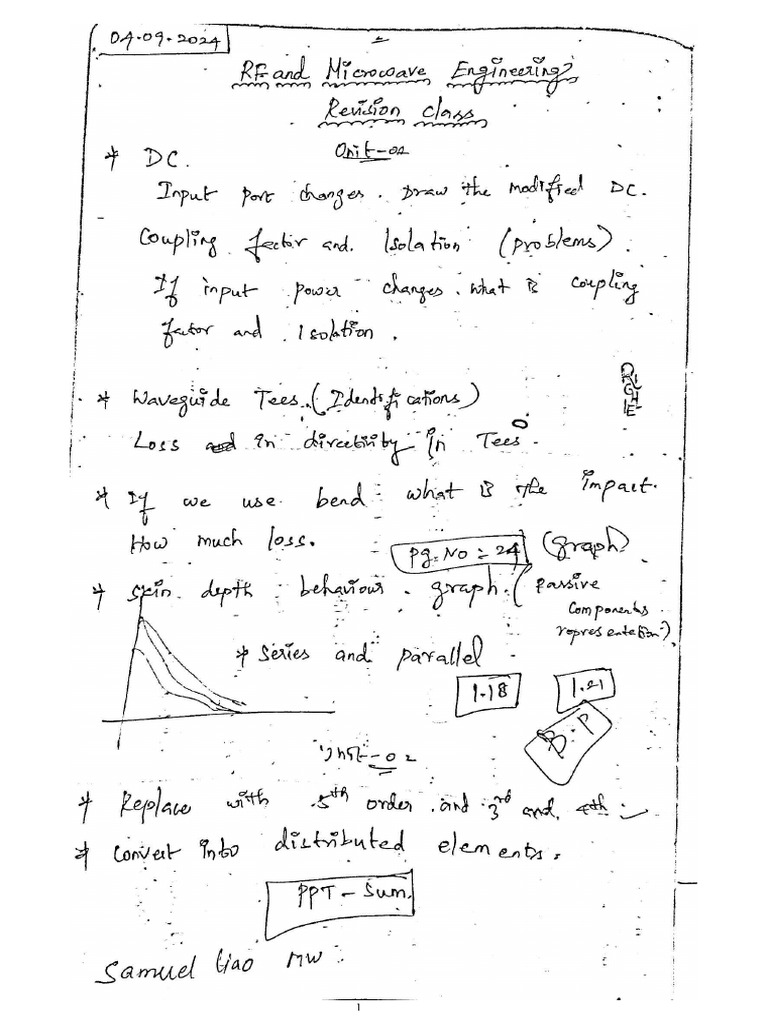 04.09.2024
RF and Microwave Engineering
Revision class
Unit-02
* DC.
Input port changes. Draw the modified DC.
Coupling factor and Isolation (problems).
If input power changes. what is coupling
factor and Isolation.
* Waveguide Tees. (Identifications)
Loss in directivity in Tees.
* If we use bend what is the impact.
How much loss.
Pg. No = 24 (Graph)
* Skin depth behaviour. graph. (Passive
components
representation).
* Series and parallel
1.18 1.21
B.P
Unit-02
* Replace with 5th order and 3rd and 4th
* Convert into distributed elements.
PPT - Sum.
Samuel Liao MW
1